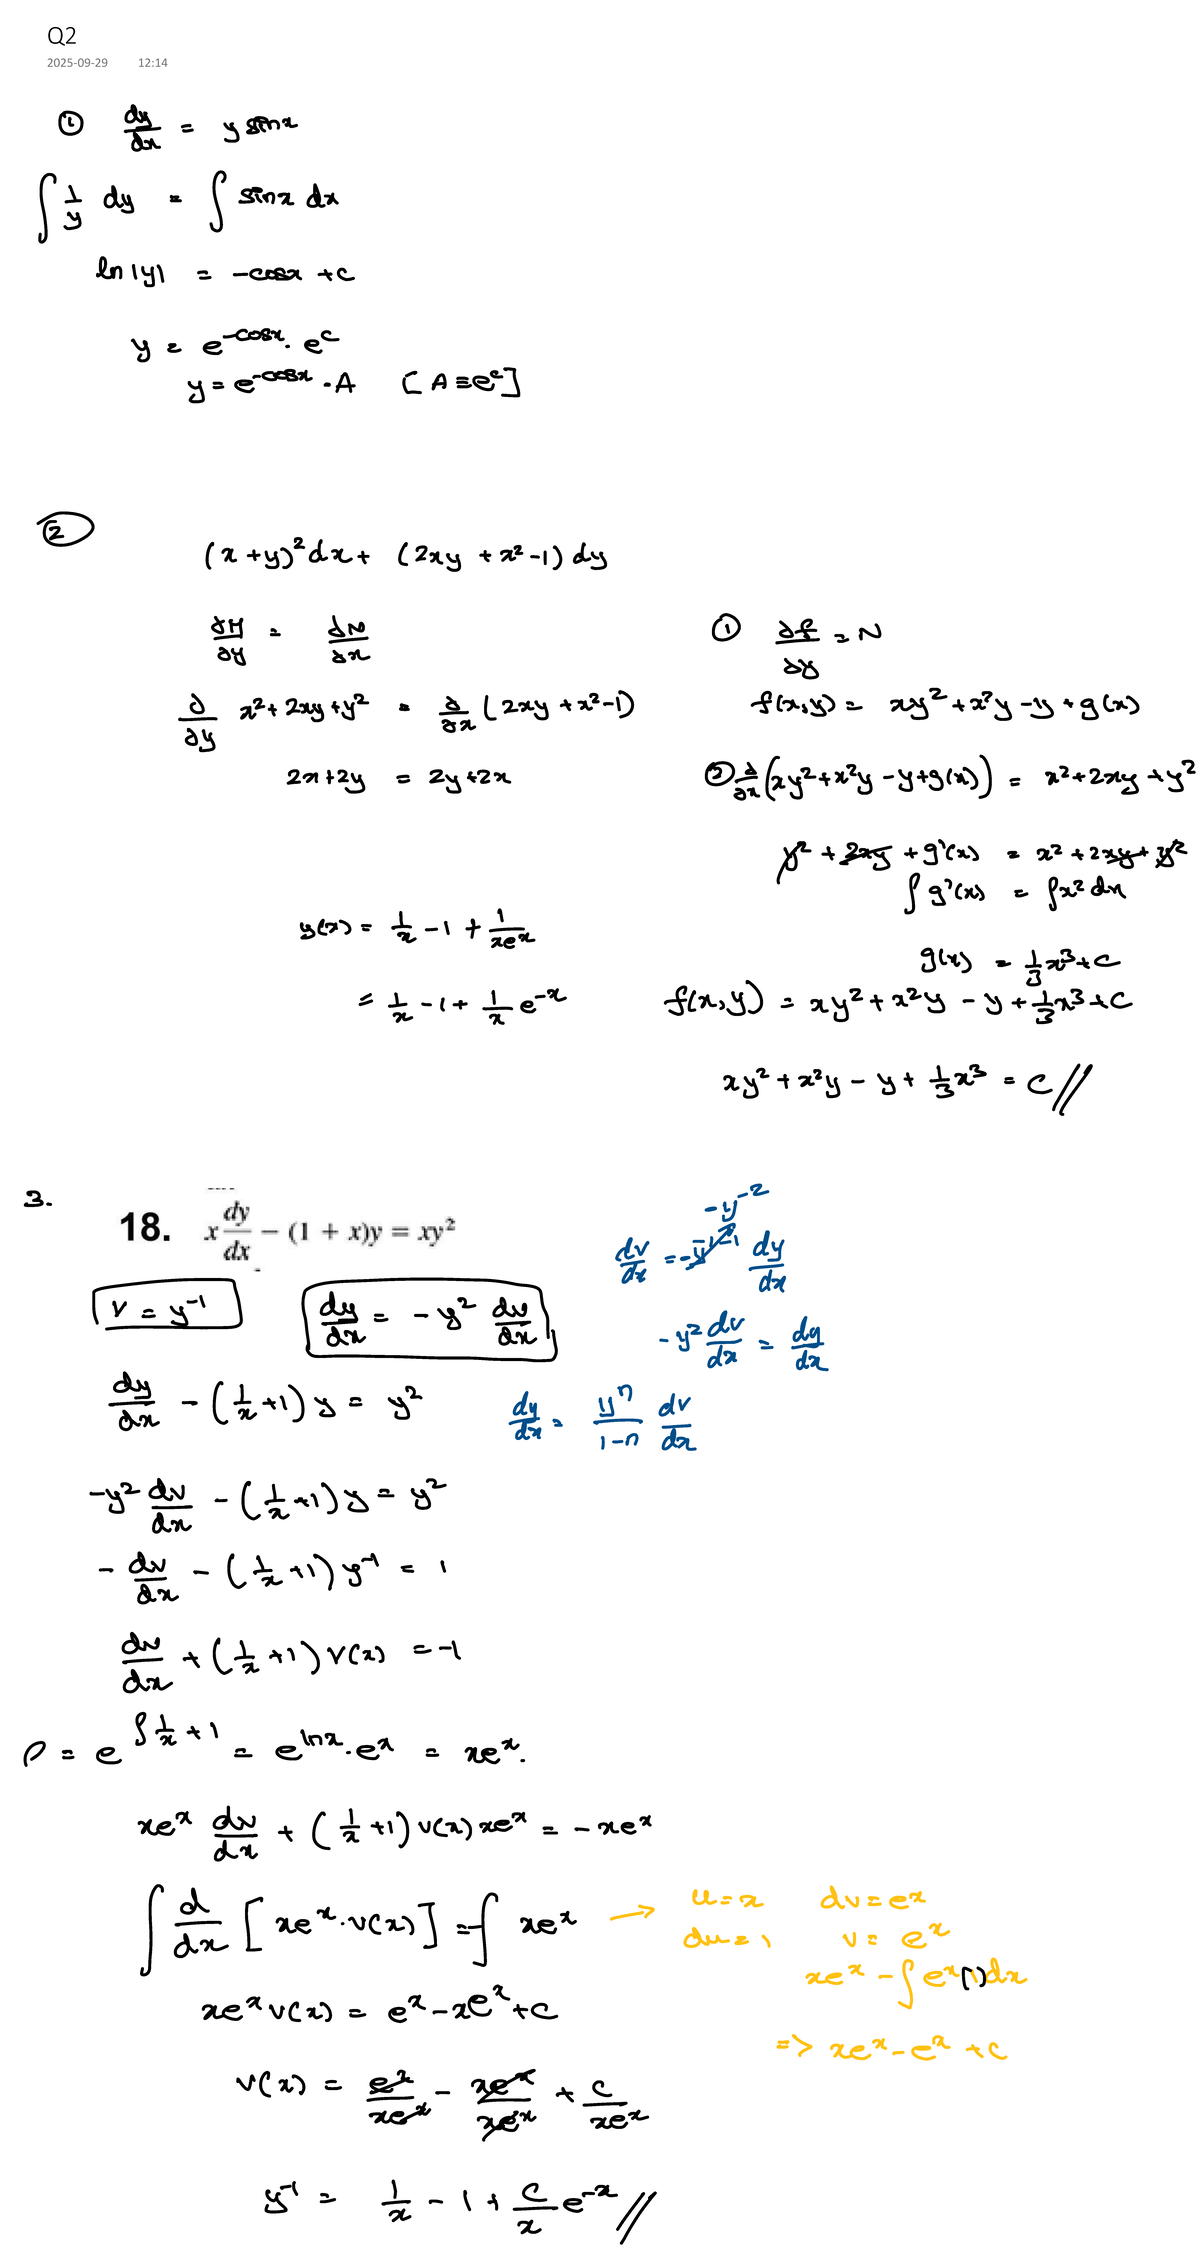 Q2
2025-09-29 12:14
① dy/dx = y sinx
∫ 1/y dy = ∫ sinx dx
ln|y| = -cosx + c
y = e^{-cosx} · e^c
y = e^{-cosx} · A [A ≡ e^c]
②
(x+y)^2 dx + (2xy + x^2 - 1) dy
∂M/∂y = ∂N/∂x
∂/∂y x^2 + 2xy + y^2 = ∂/∂x (2xy + x^2 - 1)
2x + 2y = 2y + 2x
① ∂f/∂y = N
f(x,y) = xy^2 + x^2y - y + g(x)
② ∂/∂x (xy^2 + x^2y - y + g(x)) = x^2 + 2xy + y^2
y^2 + 2xy + g'(x) = x^2 + 2xy + y^2
∫ g'(x) = ∫ x^2 dx
g(x) = 1/3 x^3 + c
f(x,y) = xy^2 + x^2y - y + 1/3 x^3 + C
xy^2 + x^2y - y + 1/3 x^3 = C //
y(x) = 1/x - 1 + 1/(xe^x)
= 1/x - 1 + 1/x e^{-x}
3.
18. x dy/dx - (1 + x)y = xy^2
v = y^{-1}
dy/dx = -y^2 dv/dx
-y^{-2}
dv/dx = -y^{-1-1} dy/dx
-y^2 dv/dx = dy/dx
dy/dx = y^n/(1-n) dv/dx
dy/dx - (1/x + 1) y = y^2
-y^2 dv/dx - (1/x + 1) y = y^2
- dv/dx - (1/x + 1) y^{-1} = 1
dv/dx + (1/x + 1) v(x) = -1
ρ = e^{∫ 1/x + 1} = e^{lnx} · e^x = xe^x.
xe^x dv/dx + (1/x + 1) v(x) xe^x = -xe^x
∫ d/dx [xe^x · v(x)] = -∫ xe^x
→ u = x dv = e^x
du = 1 v = e^x
xe^x - ∫ e^x (1) dx
=> xe^x - e^x + c
xe^x v(x) = e^x - xe^x + C
v(x) = e^x/(xe^x) - xe^x/(xe^x) + C/(xe^x)
y^{-1} = 1/x - 1 + C/x e^{-x} //